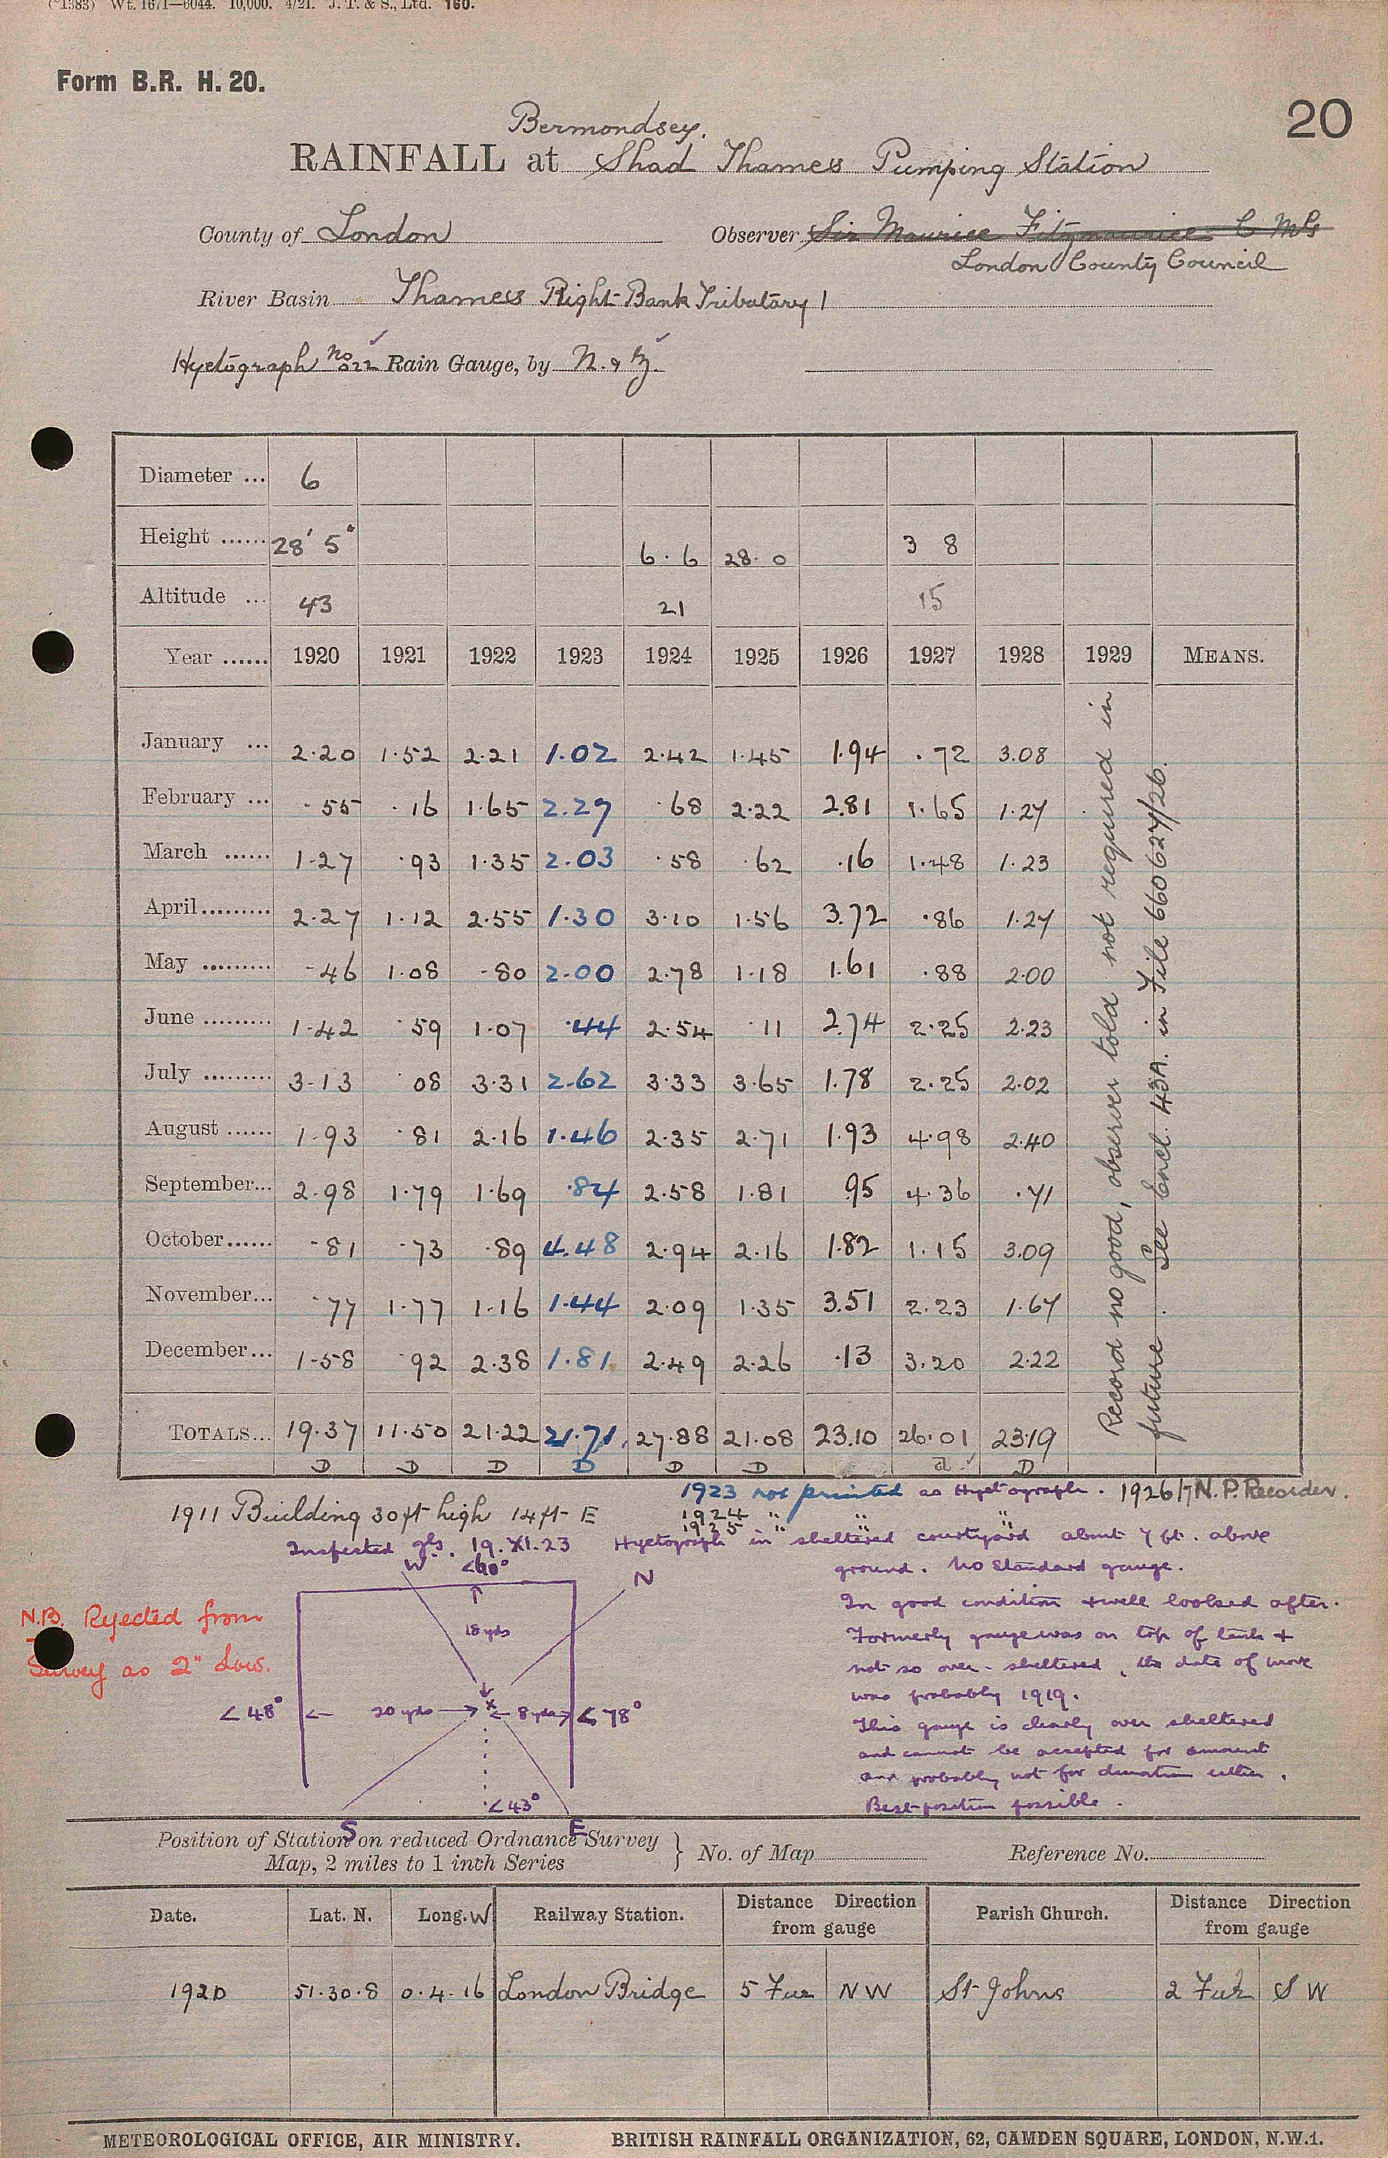 (*1583) Wt. 1671—6044. 10,000. 4/21. J. T. & S., Ltd. 160.
Form B.R. H. 20.
20
Bermondsey.
RAINFALL at Shad Thames Pumping Station
County of London Observer Sir Maurice Fitzmaurice C M G
London County Council
River Basin Thames Right Bank Tributary 1
Hyetograph No 022 Rain Gauge, by N. & Z.
Diameter ... 6
Height ...... 28' 5" 6.6 28.0 3 8
Altitude ... 43 21 15
Year ...... 1920 1921 1922 1923 1924 1925 1926 1927 1928 1929 MEANS.
January ... 2.20 1.52 2.21 1.02 2.42 1.45 1.94 .72 3.08
February ... .55 .16 1.65 2.29 .68 2.22 2.81 1.65 1.27
March ...... 1.27 .93 1.35 2.03 .58 .62 .16 1.48 1.23
April ......... 2.27 1.12 2.55 1.30 3.10 1.56 3.72 .86 1.27
May ......... .46 1.08 .80 2.00 2.78 1.18 1.61 .88 2.00
June ......... 1.42 .59 1.07 .44 2.54 .11 2.74 2.25 2.23
July ......... 3.13 .08 3.31 2.62 3.33 3.65 1.78 2.25 2.02
August ...... 1.93 .81 2.16 1.46 2.35 2.71 1.93 4.98 2.40
September... 2.98 1.79 1.69 .84 2.58 1.81 .95 4.36 .71
October...... .81 .73 .89 4.48 2.94 2.16 1.82 1.15 3.09
November... .77 1.77 1.16 1.44 2.09 1.35 3.51 2.23 1.67
December... 1.58 .92 2.38 1.81 2.49 2.26 .13 3.20 2.22
TOTALS... 19.37 11.50 21.22 21.71 27.88 21.08 23.10 26.01 23.19
D D D D D D d D
Record no good, observer told not required in
future. See Encl. 43A. in File 660627/26.
1923 not printed as Hyetograph. 1926/7 N.P. Recorder.
1911 Building 30ft high 14ft E
1924 " "
1925 " "
Inspected gls. 19.XI.23 Hyetograph in sheltered courtyard about 7 ft. above
ground. No Standard gauge.
In good condition & well looked after.
Formerly gauge was on top of tank &
not so over-sheltered, the date of move
was probably 1919.
This gauge is clearly over sheltered
and cannot be accepted for amount
and probably not for duration either.
Best position possible.
N.B. Rejected from
Survey as 2" low.
W <60° N
18 yds
<48° 20 yds x 8 yds <78°
<43°
S E
Position of Station on reduced Ordnance Survey
Map, 2 miles to 1 inch Series } No. of Map Reference No.
Date. Lat. N. Long. W Railway Station. Distance Direction from gauge Parish Church. Distance Direction from gauge
1920 51.30.8 0.4.16 London Bridge 5 Fur NW St Johns 2 Fur S W
METEOROLOGICAL OFFICE, AIR MINISTRY. BRITISH RAINFALL ORGANIZATION, 62, CAMDEN SQUARE, LONDON, N.W.1.